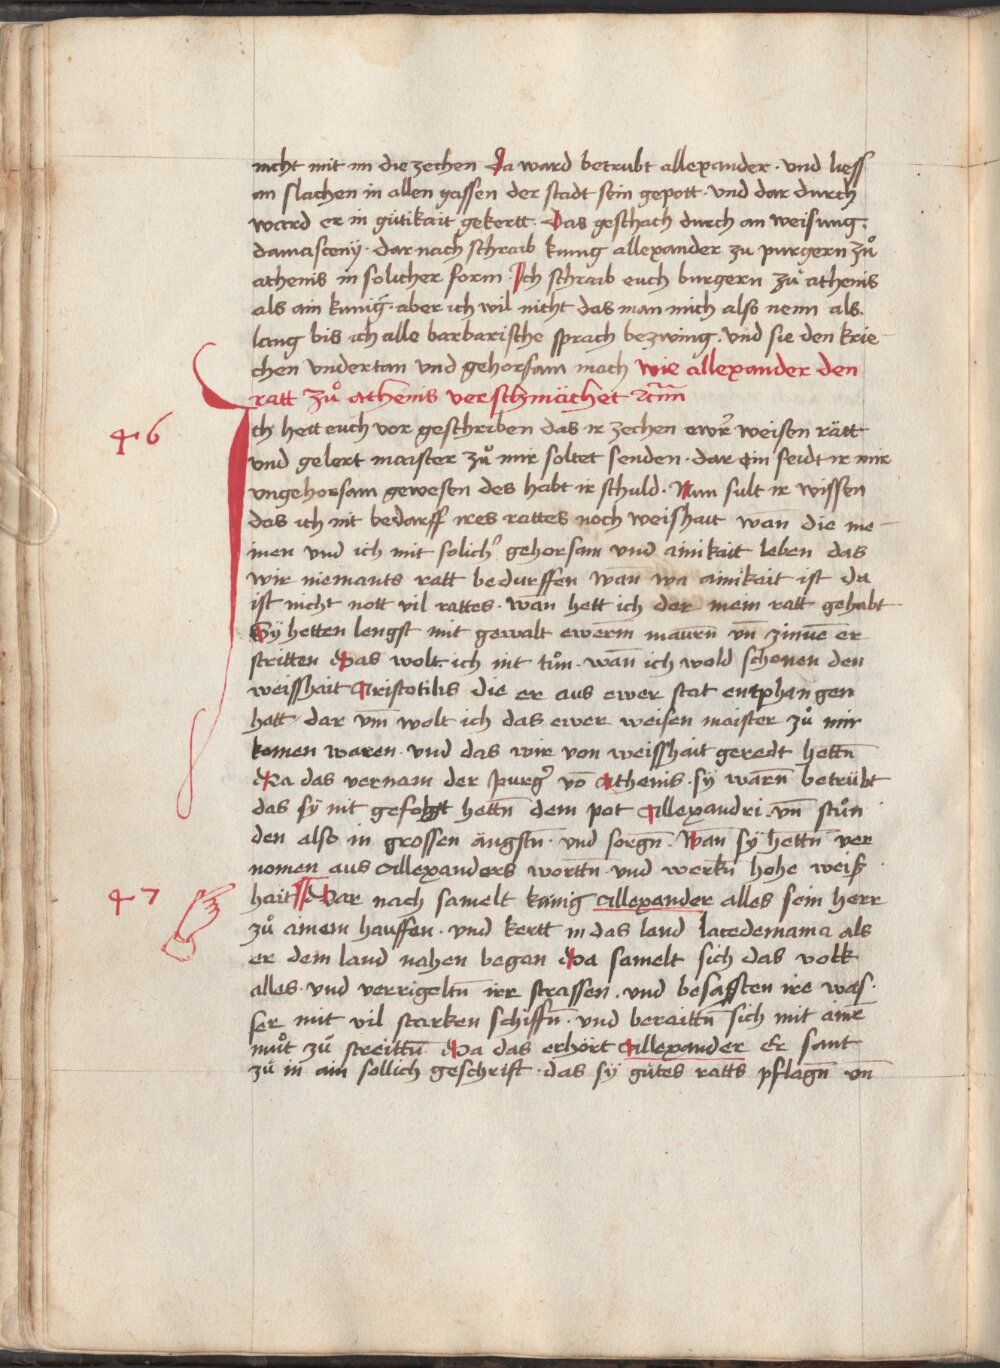 nicht mit im die zechen Da ward betrubt allexander · und liess
an slachen in allen gassen der stadt sein gepott · und dar durch
ward er in gütikait gekertt · Das geschach durch an weisung
damascenÿ · dar nach schraib kunig allexander zu purgern zů
athenis in solicher form · Ich schraib euch burgern zů athenis
als ain kunig · aber ich wil nicht das man mich also nenn als
lang bis ich alle barbarische sprach bezwing · und sie den krie
chen undertan und gehorsam mach wie allexander den
ratt zů athenis verschmächet
46
Ich hett euch vor geschriben das ir zechen ewr̄ weisen rätt
und gelert maister zů mir soltet senden · dar ein seidt ir mir
ungehorsam gewesen des habt ir schuld · Nun sult ir wissen
das ich nit bedarff ires rattes noch weishait wan̄ die me
inen und ich mit solich' gehorsam und ainikait leben das
wir niemants ratt bedurffen wan̄ wa ainikait ist da
ist nicht nott vil rattes · wan̄ hett ich der mein ratt gehabt
Sÿ hetten lengst mit gewalt ewerm maurn̄ vn̄ zinne er
stritten Das wolt ich nit tůn · wan̄ ich wold schonen den
weisshait Aristotilis die er aus ewer stat entphangen
hatt · dar vm̄ wolt ich das ewer weisen maister zů mir
komen waren · und das wir von weisshait geredt hettn̄
Da das vernam der purg' vō Athenis · sÿ warn̄ betrübt
das sÿ nit gefolgt hettn̄ dem pot Allexandri · vn̄ stůn
den also in grossen ängstn̄ · und sorgn̄ · Wan̄ sÿ hettn̄ ver
nomen aus Allexanders worttn̄ · und werkn̄ hohe weiß
47
hait Dar nach samelt kunig Allexander alles sein herr
zů ainem hauffen · und kertt in das land lacedemania als
er dem land nahen began Da samelt sich das volk
alles · und verrigeltn̄ irr strassen · und besatzten ire was
ser mit vil starken schiffn̄ · und beraittn̄ sich mit ainr̄
můt zů streittn̄ Da das erhört Allexander Er sant
zů in ain sollich geschrift · das sÿ gůtes ratts pflagn̄ vn̄